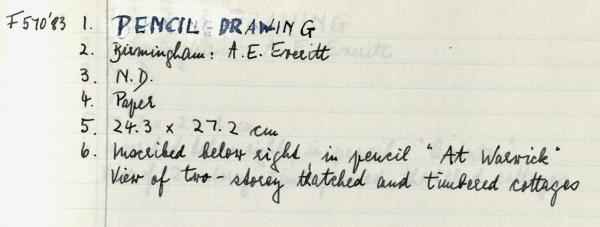 F570'83 1. PENCIL DRAWING
2. Birmingham: A.E. Everitt
3. N.D.
4. Paper
5. 24.3 x 27.2 cm
6. Inscribed below right, in pencil "At Warwick"
View of two-storey thatched and timbered cottages